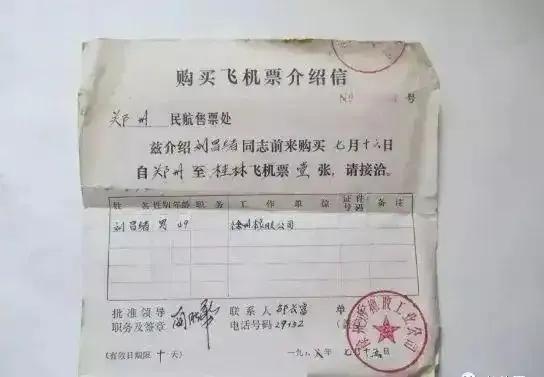 购买飞机票介绍信
No 号
郑州 民航售票处
兹介绍刘昌绪同志前来购买七月十六日
自郑州至桂林飞机票壹张，请接洽。
姓名 性别 年龄 职务 工作单位 证件号码 备注
刘昌绪 男 49 公司
批准领导 联系人 单
职务及签章 电话号码 29132
(有效日期限十天) 一九八 年七月十五日